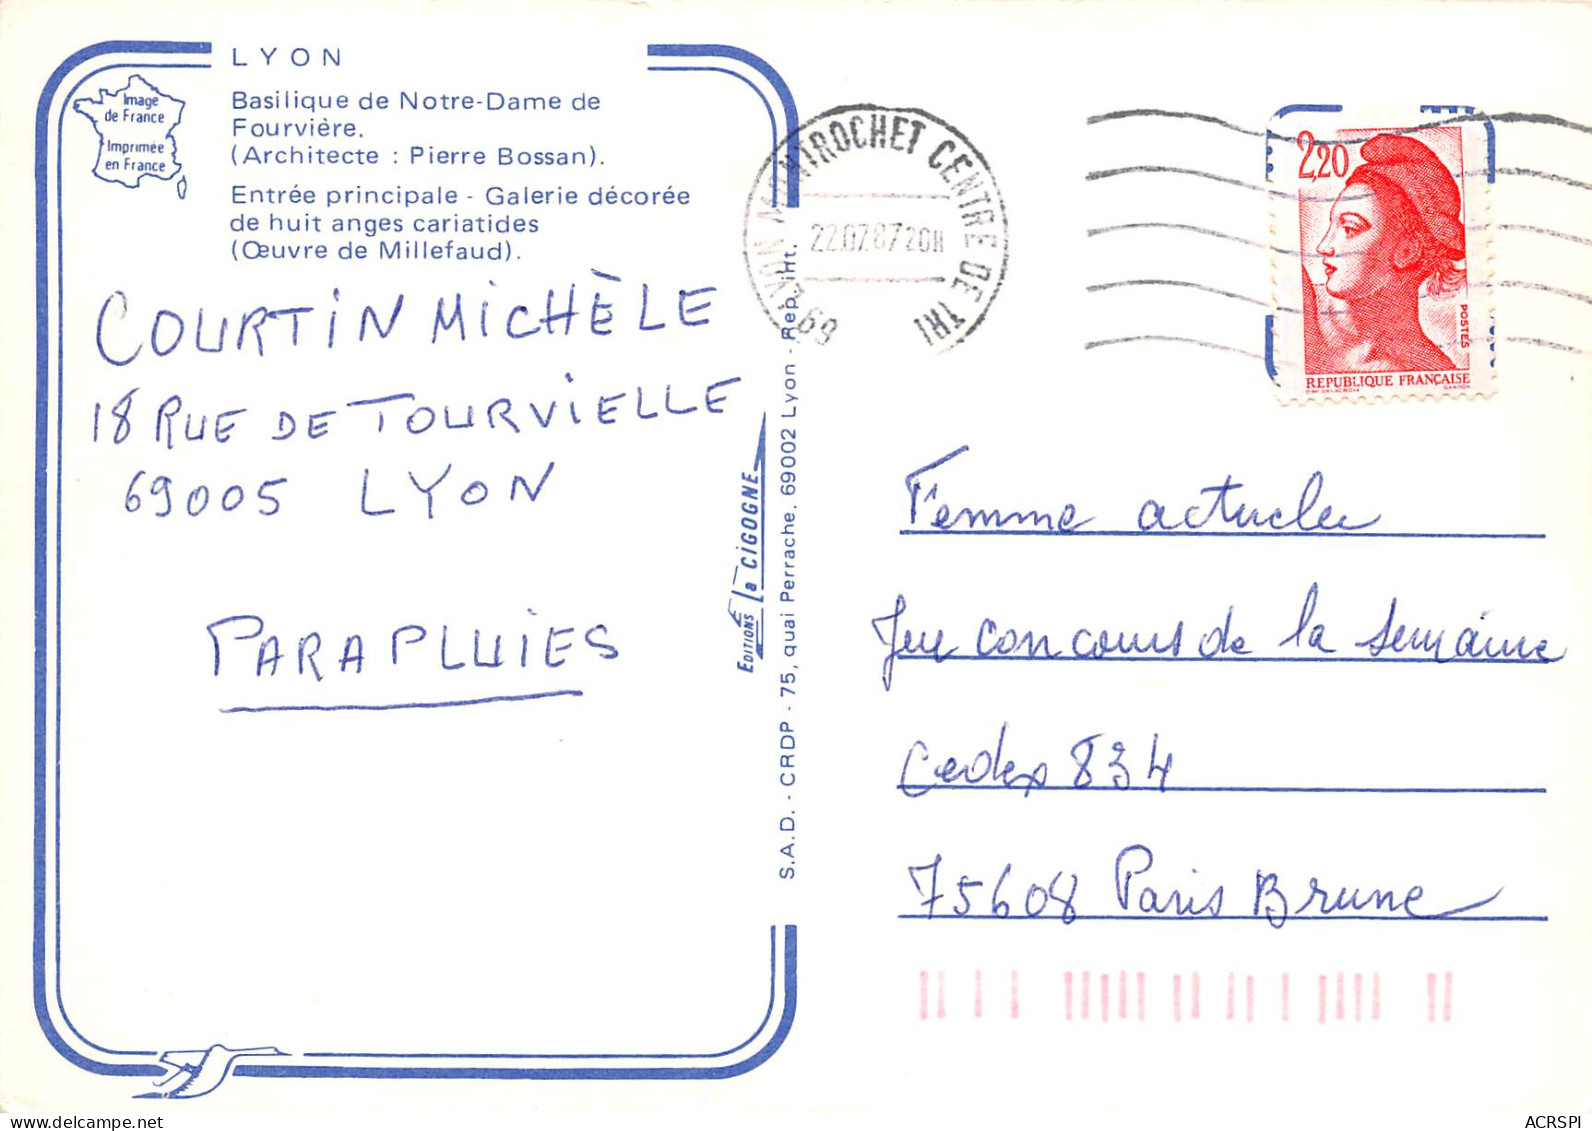 LYON
Image
de France
Imprimée
en France
Basilique de Notre-Dame de
Fourvière.
(Architecte : Pierre Bossan).
Entrée principale - Galerie décorée
de huit anges cariatides
(Œuvre de Millefaud).
COURTIN MICHÈLE
18 RUE DE TOURVIELLE
69005 LYON
PARAPLUIES
EDITIONS la CIGOGNE
S.A.D. - CRDP - 75, quai Perrache, 69002 Lyon - Rep. int.
69 LYON MONTROCHET CENTRE DE TRI
22.07.87 20H
2,20
POSTES
REPUBLIQUE FRANÇAISE
Femme actuelle
Jeu concours de la semaine
Cedex 834
75608 Paris Brune
delcampe.net
ACRSPI